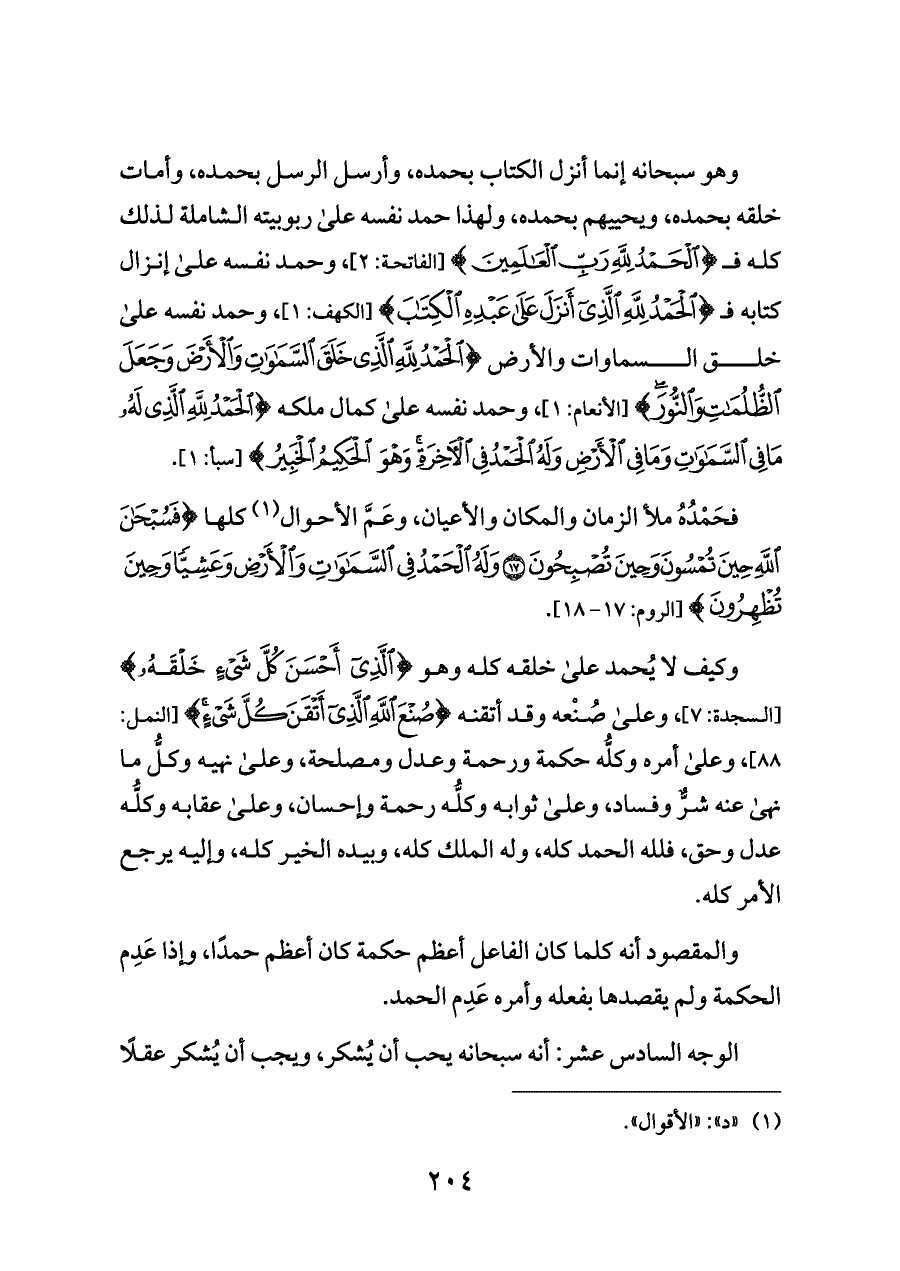 وهو سبحانه إنما أنزل الكتاب بحمده، وأرسل الرسل بحمده، وأمات
خلقه بحمده، ويحييهم بحمده، ولهذا حمد نفسه علىٰ ربوبيته الشاملة لذلك
كله فـ ﴿ٱلْحَمْدُ لِلَّهِ رَبِّ ٱلْعَٰلَمِينَ﴾ [الفاتحة: ٢]، وحمد نفسه علىٰ إنزال
كتابه فـ ﴿ٱلْحَمْدُ لِلَّهِ ٱلَّذِىٓ أَنزَلَ عَلَىٰ عَبْدِهِ ٱلْكِتَٰبَ﴾ [الكهف: ١]، وحمد نفسه علىٰ
خلق السماوات والأرض ﴿ٱلْحَمْدُ لِلَّهِ ٱلَّذِى خَلَقَ ٱلسَّمَٰوَٰتِ وَٱلْأَرْضَ وَجَعَلَ
ٱلظُّلُمَٰتِ وَٱلنُّورَۖ﴾ [الأنعام: ١]، وحمد نفسه علىٰ كمال ملكه ﴿ٱلْحَمْدُ لِلَّهِ ٱلَّذِى لَهُۥ
مَا فِى ٱلسَّمَٰوَٰتِ وَمَا فِى ٱلْأَرْضِ وَلَهُ ٱلْحَمْدُ فِى ٱلْأَخِرَةِۚ وَهُوَ ٱلْحَكِيمُ ٱلْخَبِيرُ﴾ [سبأ: ١].
فحَمْدُهُ ملأ الزمان والمكان والأعيان، وعَمَّ الأحوال(١) كلها ﴿فَسُبْحَٰنَ
ٱللَّهِ حِينَ تُمْسُونَ وَحِينَ تُصْبِحُونَ ۝١٧ وَلَهُ ٱلْحَمْدُ فِى ٱلسَّمَٰوَٰتِ وَٱلْأَرْضِ وَعَشِيًّا وَحِينَ
تُظْهِرُونَ﴾ [الروم: ١٧-١٨].
وكيف لا يُحمد علىٰ خلقه كله وهو ﴿ٱلَّذِىٓ أَحْسَنَ كُلَّ شَىْءٍ خَلَقَهُۥ﴾
[السجدة: ٧]، وعلىٰ صُنْعه وقد أتقنه ﴿صُنْعَ ٱللَّهِ ٱلَّذِىٓ أَتْقَنَ كُلَّ شَىْءٍۚ﴾ [النمل:
٨٨]، وعلىٰ أمره وكلُّه حكمة ورحمة وعدل ومصلحة، وعلىٰ نهيه وكلُّ ما
نهىٰ عنه شرٌّ وفساد، وعلىٰ ثوابه وكلُّه رحمة وإحسان، وعلىٰ عقابه وكلُّه
عدل وحق، فلله الحمد كله، وله الملك كله، وبيده الخير كله، وإليه يرجع
الأمر كله.
والمقصود أنه كلما كان الفاعل أعظم حكمة كان أعظم حمدًا، وإذا عَدِم
الحكمة ولم يقصدها بفعله وأمره عَدِم الحمد.
الوجه السادس عشر: أنه سبحانه يحب أن يُشكر، ويجب أن يُشكر عقلًا
(١) «د»: «الأقوال».
٢٠٤